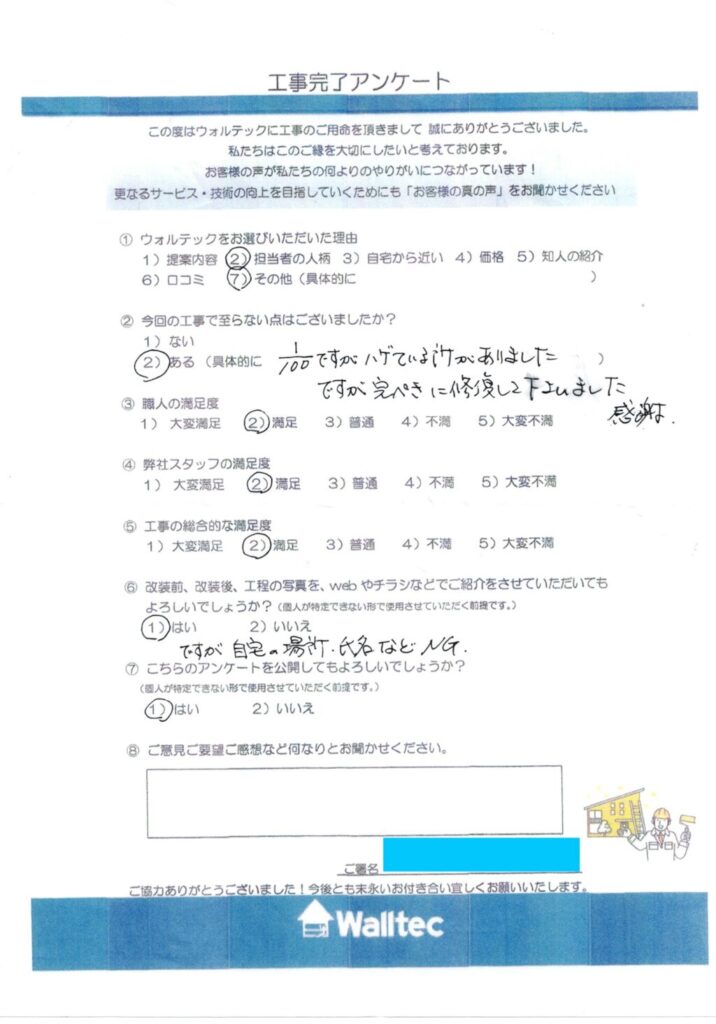 工事完了アンケート
この度はウォルテックに工事のご用命を頂きまして 誠にありがとうございました。
私たちはこのご縁を大切にしたいと考えております。
お客様の声が私たちの何よりのやりがいにつながっています！
更なるサービス・技術の向上を目指していくためにも「お客様の真の声」をお聞かせください
① ウォルテックをお選びいただいた理由
1）提案内容 2）担当者の人柄 3）自宅から近い 4）価格 5）知人の紹介
6）口コミ 7）その他（具体的に ）
② 今回の工事で至らない点はございましたか？
1）ない
2）ある（具体的に 1/100ですがハゲている所がありました ）
ですが完ぺきに修復して下さいました
感謝.
③ 職人の満足度
1） 大変満足 2）満足 3）普通 4）不満 5）大変不満
④ 弊社スタッフの満足度
1） 大変満足 2）満足 3）普通 4）不満 5）大変不満
⑤ 工事の総合的な満足度
1）大変満足 2）満足 3）普通 4）不満 5）大変不満
⑥ 改装前、改装後、工程の写真を、webやチラシなどでご紹介をさせていただいても
よろしいでしょうか？（個人が特定できない形で使用させていただく前提です。）
1）はい 2）いいえ
ですが 自宅の場所.氏名などNG.
⑦ こちらのアンケートを公開してもよろしいでしょうか？
（個人が特定できない形で使用させていただく前提です。）
1）はい 2）いいえ
⑧ ご意見ご要望ご感想など何なりとお聞かせください。
ご署名
ご協力ありがとうございました！今後とも末永いお付き合い宜しくお願いいたします。
Walltec